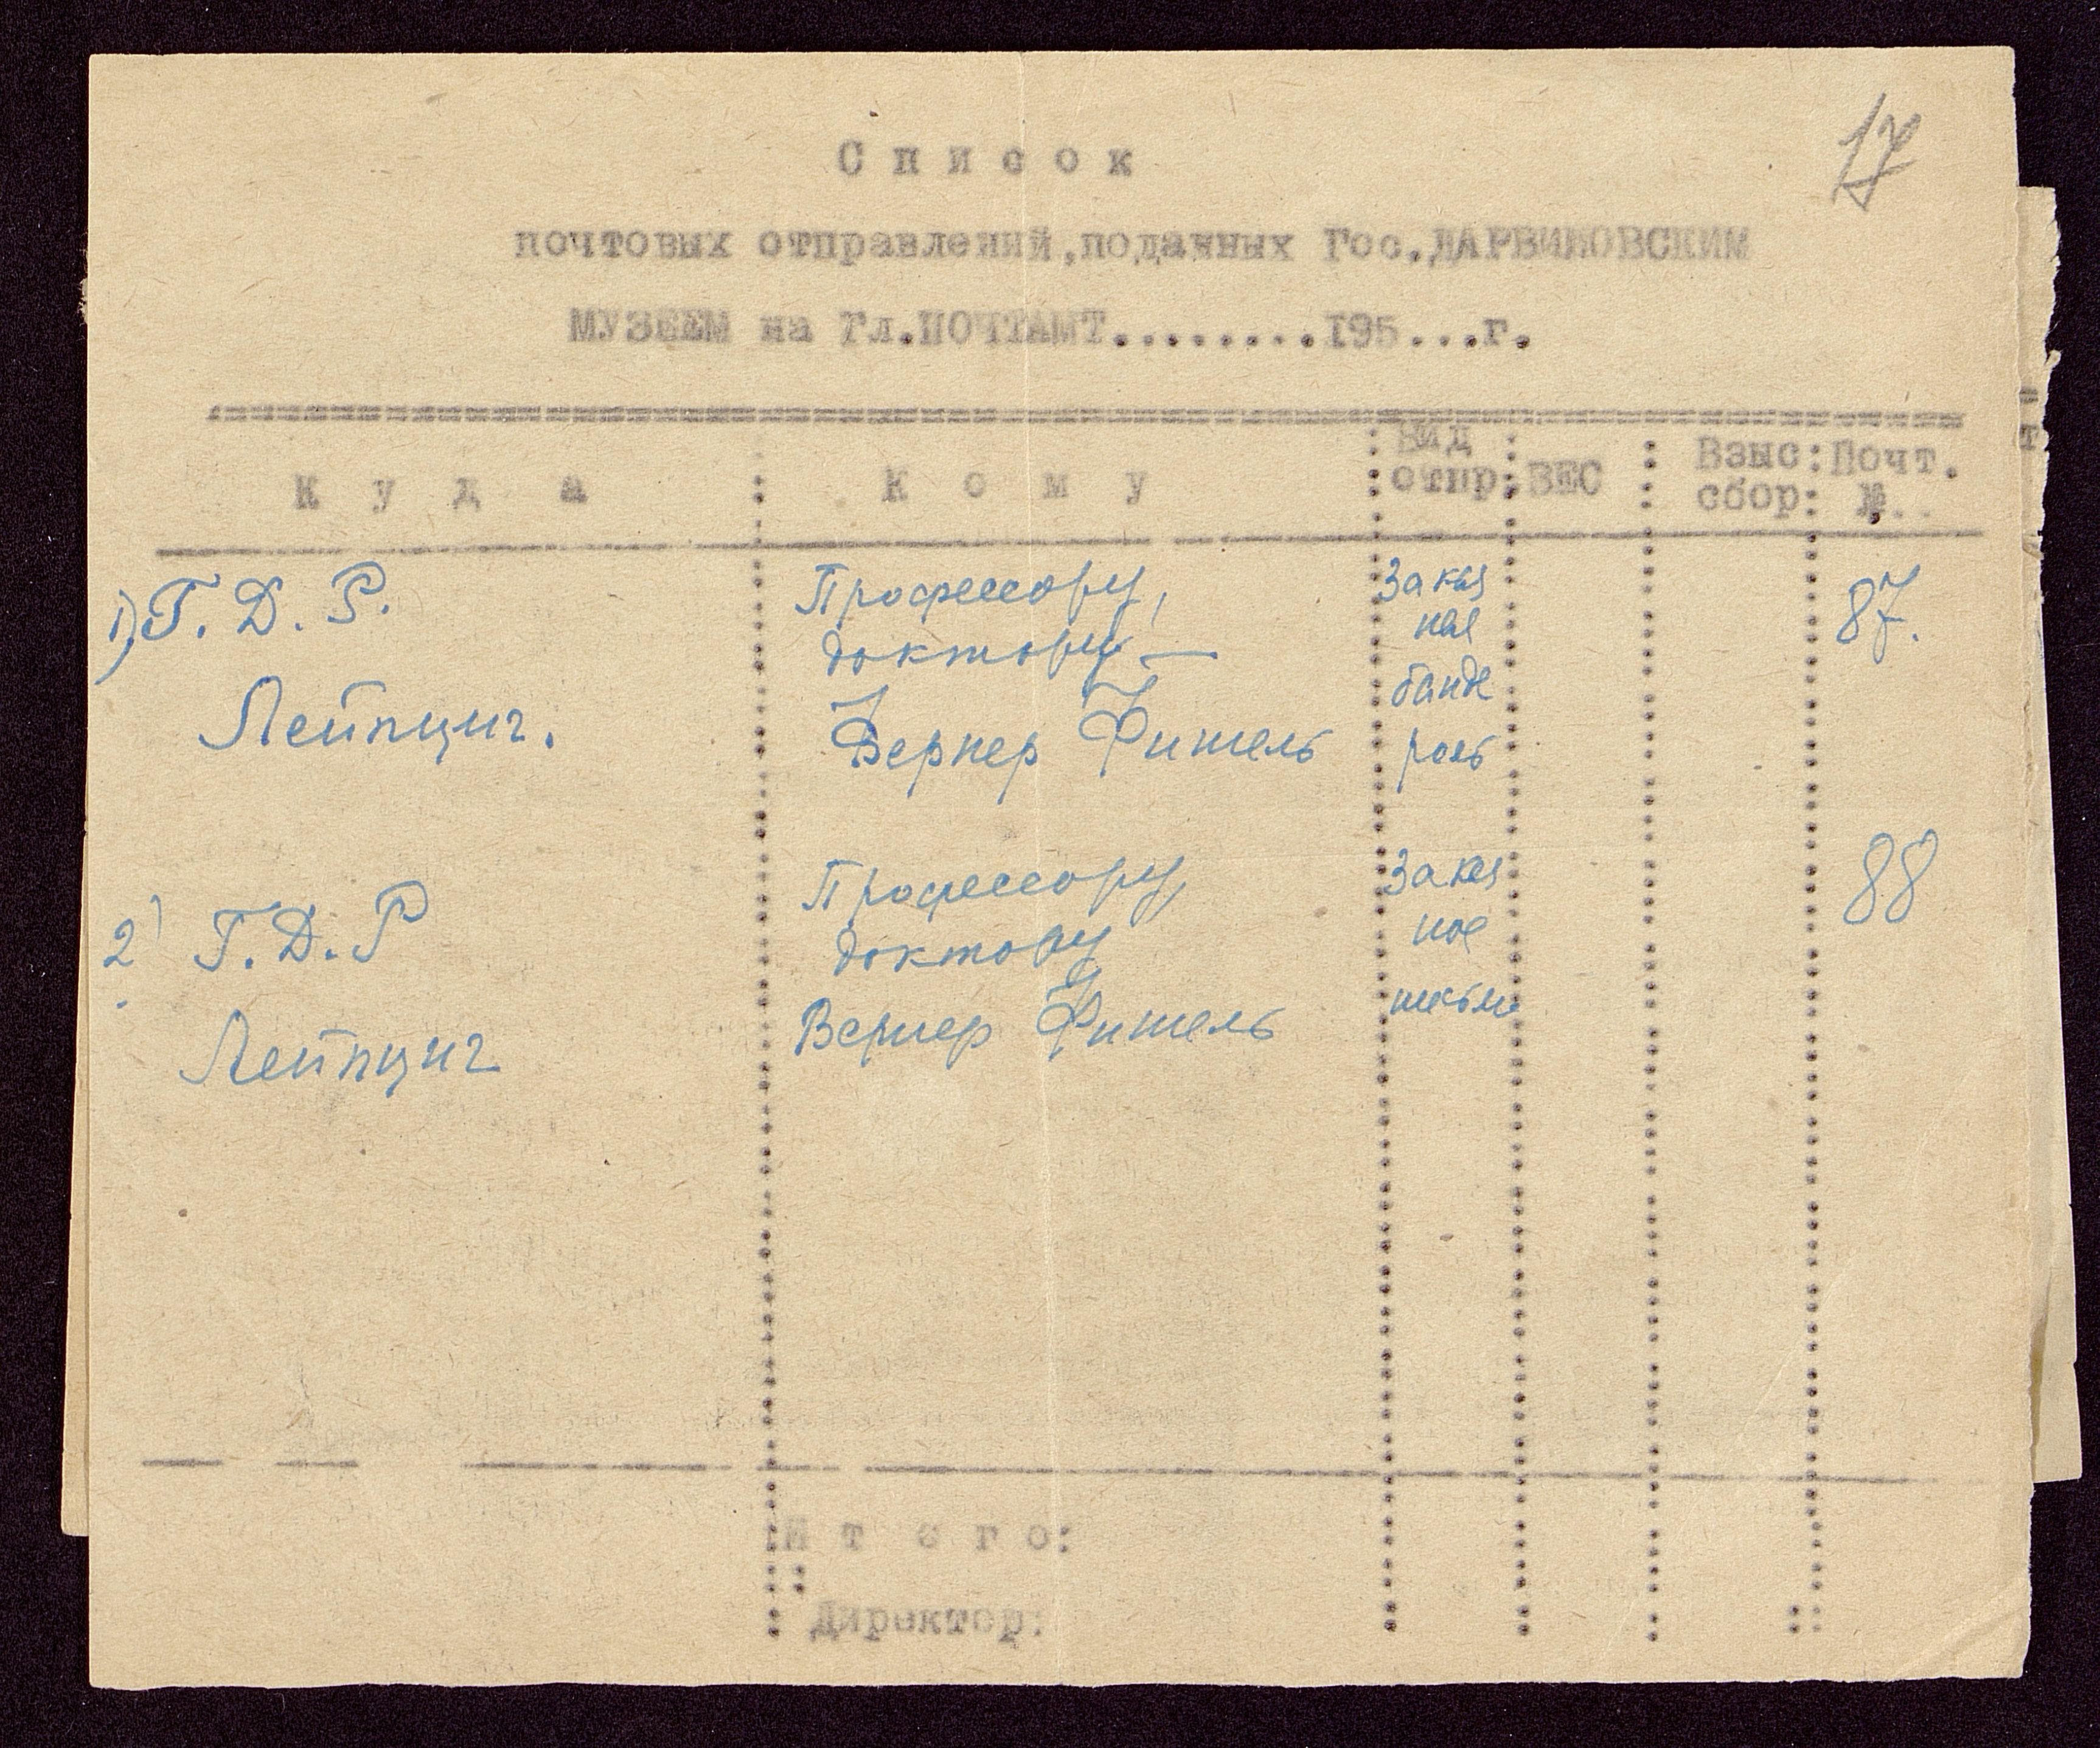 17
Список
почтовых отправлений, поданных Гос. ДАРВИНОВСКИМ
МУЗЕЕМ на Гл. ПОЧТАМТ.........195...г.
Куда : Кому : Вид отпр : ВЕС : Взыс сбор : Почт. №..
1) Г. Д. Р.
Лейпциг.
Профессору,
доктору —
Вернер Фишель
Заказ
ная
банде
роль
87.
2) Г. Д. Р
Лейпциг
Профессору,
доктору
Вернер Фишель
Заказ
ное
письмо
88
Итого:
Директор: